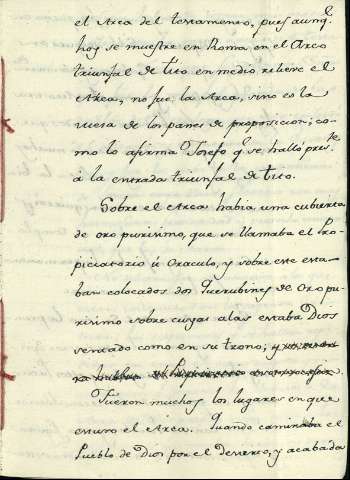 el Arca del testamento, pues aunq.
hoy se muestre en Roma en el Arco
triunfal de tito en medio relieve el
Arca, no fue la Arca, sino es la
mesa de los panes de proposicion; co-
mo lo afirma Josefo q.e se halló pres.te
á la entrada triunfal de tito.
Sobre el Arca habia una cubierta
de oro purisimo, que se llamaba el Pro-
piciatorio ú Oraculo, y sobre este esta-
ban colocados dos Querubines de Oro pu-
risimo sobre cuyas alas estaba Dios
sentado como en su trono;
Fueron muchos los lugares en que
estuvo el Arca. Quando caminaba el
Pueblo de Dios por el desierto, y acabada